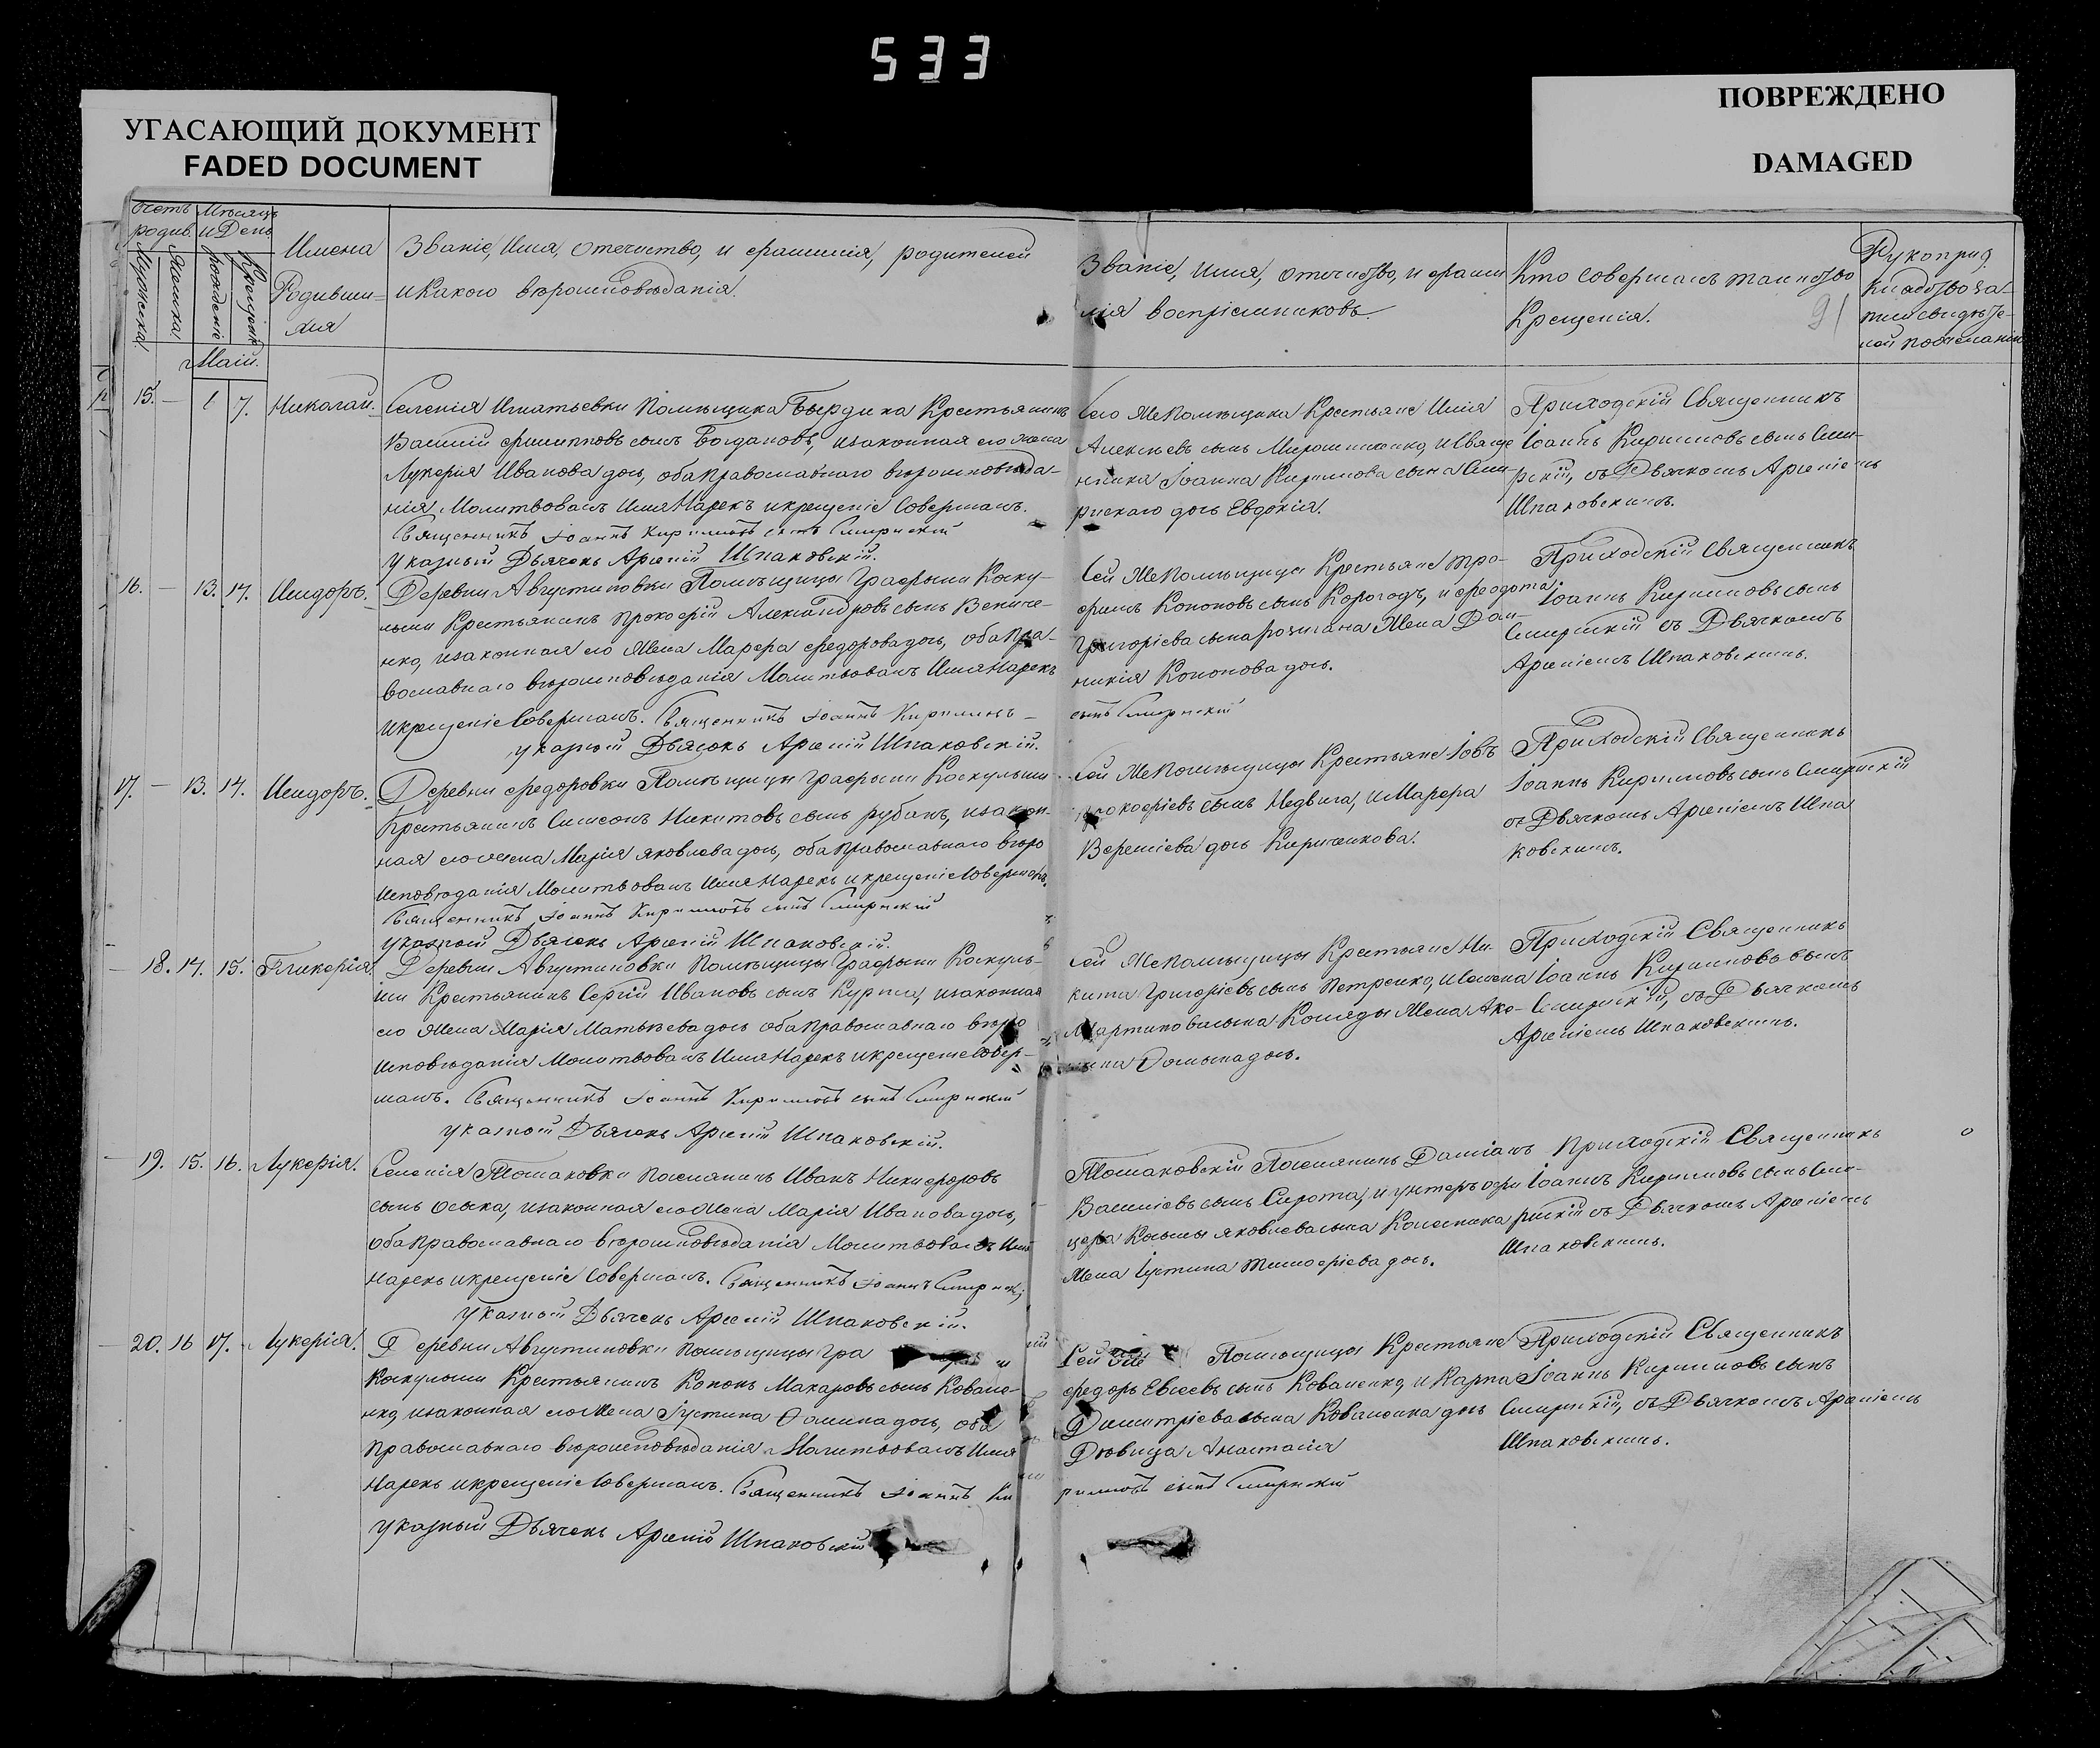 533
УГАСАЮЩИЙ ДОКУМЕНТ
FADED DOCUMENT
ПОВРЕЖДЕНО
DAMAGED
Счетъ родив.
Мѣсяцъ и День
Мужеска
Женска
рожденія
Крещенія
Имена
Родивши=
хся
Званіе, Имя, Отечество, и фамилія, родителей
и Какого вѣроисповѣданія.
Званіе, имя, отечество, и фами
лія воспріемниковъ.
Кто совершалъ таинство
Крещенія.
91
Маій.
15. — 1 7. Николай.
Селенія Игнатьевки Помѣщика Бердика Крестьянинъ
Василій Филиповъ сынъ Богдановъ, и законная его жена
Лукерія Иванова дочь, оба Православнаго вѣроисповѣда-
нія Молитвовалъ Имя Нарекъ и крещеніе Совершалъ.
Священникъ Іоаннъ Кириловъ сынъ Смирнскій
Указный Дьячекъ Арсеній Шпаковскій.
Его же Помѣщика Крестьяне Илія
Алексѣевъ сынъ Мирошниченко, и Свяще
нника Іоанна Кирилова сына Сми-
рнскаго дочь Евдокія.
Приходскій Священникъ
Іоаннъ Кириловъ сынъ Сми-
рнскій, съ Дьячкомъ Арсеніемъ
Шпаковскимъ.
16. — 13. 14. Исидоръ.
Деревни Августиновки Помѣщицы Графыни Коску-
льши Крестьянинъ Прокофій Александровъ сынъ Величе-
нко, и законная его Жена Марфа Федорова дочь, оба Пра-
вославнаго вѣроисповѣданія Молитвовалъ Имя Нарекъ
и крещеніе Совершалъ. Священникъ Іоаннъ Кириловъ
сынъ Смирнскій
указной Дьячекъ Арсеній Шпаковскій.
Сей же Помѣщицы Крестьяне Тро-
фимъ Кононовъ сынъ Корогодъ, и Феодота
Григоріева сына Жена Дом-
никія Кононова дочь.
Приходскій Священникъ
Іоаннъ Кириловъ сынъ
Смирнскій съ Дьячкомъ
Арсеніемъ Шпаковскимъ.
17. — 13. 14. Исидоръ.
Деревни Федоровки Помѣщицы Графыни Коскульши
Крестьянинъ Симеонъ Никитовъ сынъ Рубанъ, и закон-
ная его жена Марія Яковлева дочь, оба Православнаго вѣро
исповѣданія Молитвовалъ Имя Нарекъ и крещеніе Совершалъ.
Священникъ Іоаннъ Кириловъ сынъ Смирнскій
указной Дьячекъ Арсеній Шпаковскій.
Сей же Помѣщицы Крестьяне Іовъ
Прокофіевъ сынъ Недвига, и Марфа
дочь Кириченкова.
Приходскій Священникъ
Іоаннъ Кириловъ сынъ Смирнскій
съ Дьячкомъ Арсеніемъ Шпа
ковскимъ.
18. 14. 15. Гликерія
Деревни Августиновки Помѣщицы Графыни Коскуль-
ши Крестьянинъ Сергій Ивановъ сынъ Курта, и законная
его Жена Марія Матвѣева дочь оба Православнаго вѣро
исповѣданія Молитвовалъ Имя Нарекъ и крещеніе Совер-
шалъ. Священникъ Іоаннъ Кириловъ сынъ Смирнскій
указной Дьячекъ Арсеній Шпаковскій.
Сей же Помѣщицы Крестьяне Ни-
кита Григоріевъ сынъ Петренко, и
Мартинова сына Коляды Жена Аку-
лина Фомина дочь.
Приходскій Священникъ
Іоаннъ Кириловъ сынъ
Смирнскій, съ Дьячкомъ
Арсеніемъ Шпаковскимъ.
19. 15. 16. Лукерія.
Селенія Томаковки поселянинъ Иванъ Никифоровъ
сынъ Оська, и законная его жена Марія Иванова дочь,
оба Православнаго вѣроисповѣданія Молитвовалъ Имя
Нарекъ и крещеніе совершалъ. Священникъ Іоаннъ Смирнскі
указной Дьячекъ Арсеній Шпаковскій.
Томаковскій Поселянинъ Даміанъ
Василіевъ сынъ Сирота, и унтеръ офи
цера Космы Яковлева сына Колесника
Жена Іустина Тимофіева дочь.
Приходскій Священникъ
Іоаннъ Кириловъ сынъ Сми-
рнскій съ Дьячкомъ Арсеніемъ
Шпаковскимъ.
20. 16 17. Лукерія.
Деревни Августиновки Помѣщицы Гра
Коскульши Крестьянинъ Кононъ Макаровъ сынъ Ковале-
нко, и законная его Жена Іустина Фомина дочь, оба
Православнаго вѣроисповѣданія Молитвовалъ Имя
Нарекъ и крещеніе Совершалъ. Священникъ Іоаннъ Ки
риловъ сынъ Смирнскій
указный Дьячекъ Арсеній Шпаковскій
Сей Помѣщицы Крестьяне
Федоръ Евсеевъ сынъ Коваленко, и Карпа
Димитріева сына Коваленка дочь
Дѣвица Анастасія
Приходскій Священникъ
Іоаннъ Кириловъ сынъ
Смирнскій, съ Дьячкомъ Арсеніемъ
Шпаковскимъ.